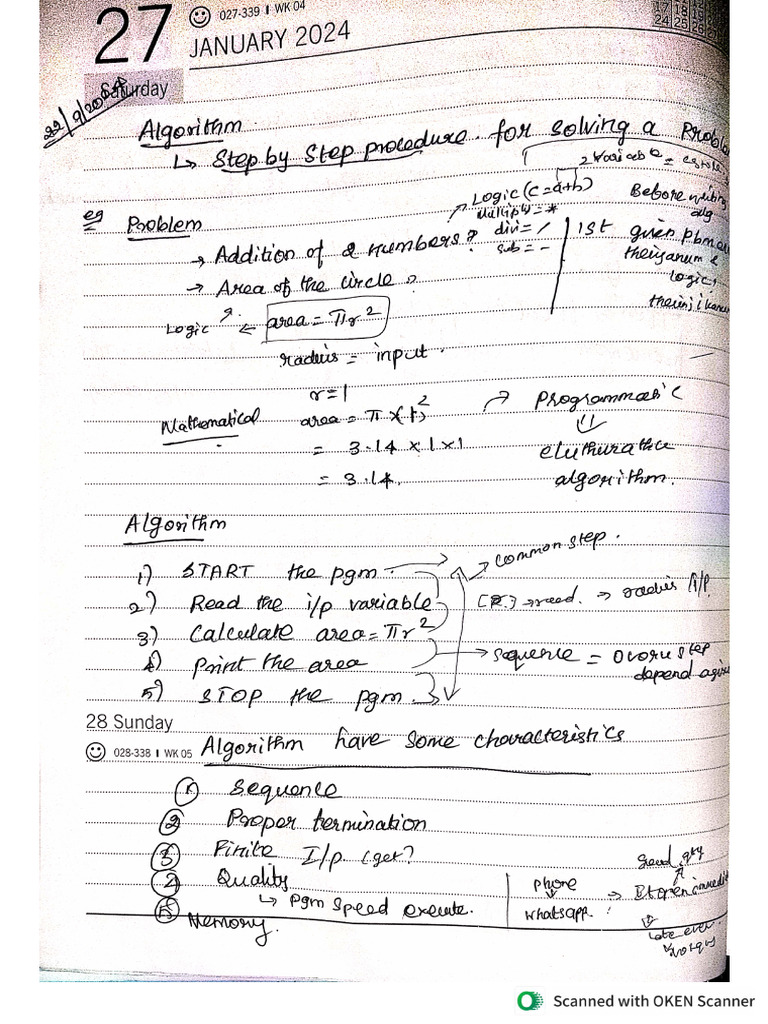 27
027-339 I WK 04
JANUARY 2024
17 18
24 25 26 27
Saturday
Algorithm
↳ Step by Step procedure for solving a
2 variable =
eg Problem
Logic (c=a+b)
multiply = *
div = /
sub = -
→ Addition of 2 numbers?
→ Area of the circle?
Before writing
alg
1st given pbm
logic,
Logic ← area = πr²
radius = input.
r=1
Mathematical area = π x(1)²
= 3.14 x 1 x 1
= 3.14.
→ Programmatic
eluthurathu
algorithm.
Algorithm
1) START the pgm → common step.
2) Read the i/p variable → read. → radius i/p.
3) Calculate area = πr²
4) Print the area → sequence = ovoru step
depend
5) STOP the pgm.
28 Sunday
028-338 I WK 05
Algorithm have some characteristics
① Sequence
② Proper termination
③ Finite I/p (get?
④ Quality
↳ Pgm speed execute.
⑤ Memory.
phone
whatsapp.
→ It open
Scanned with OKEN Scanner